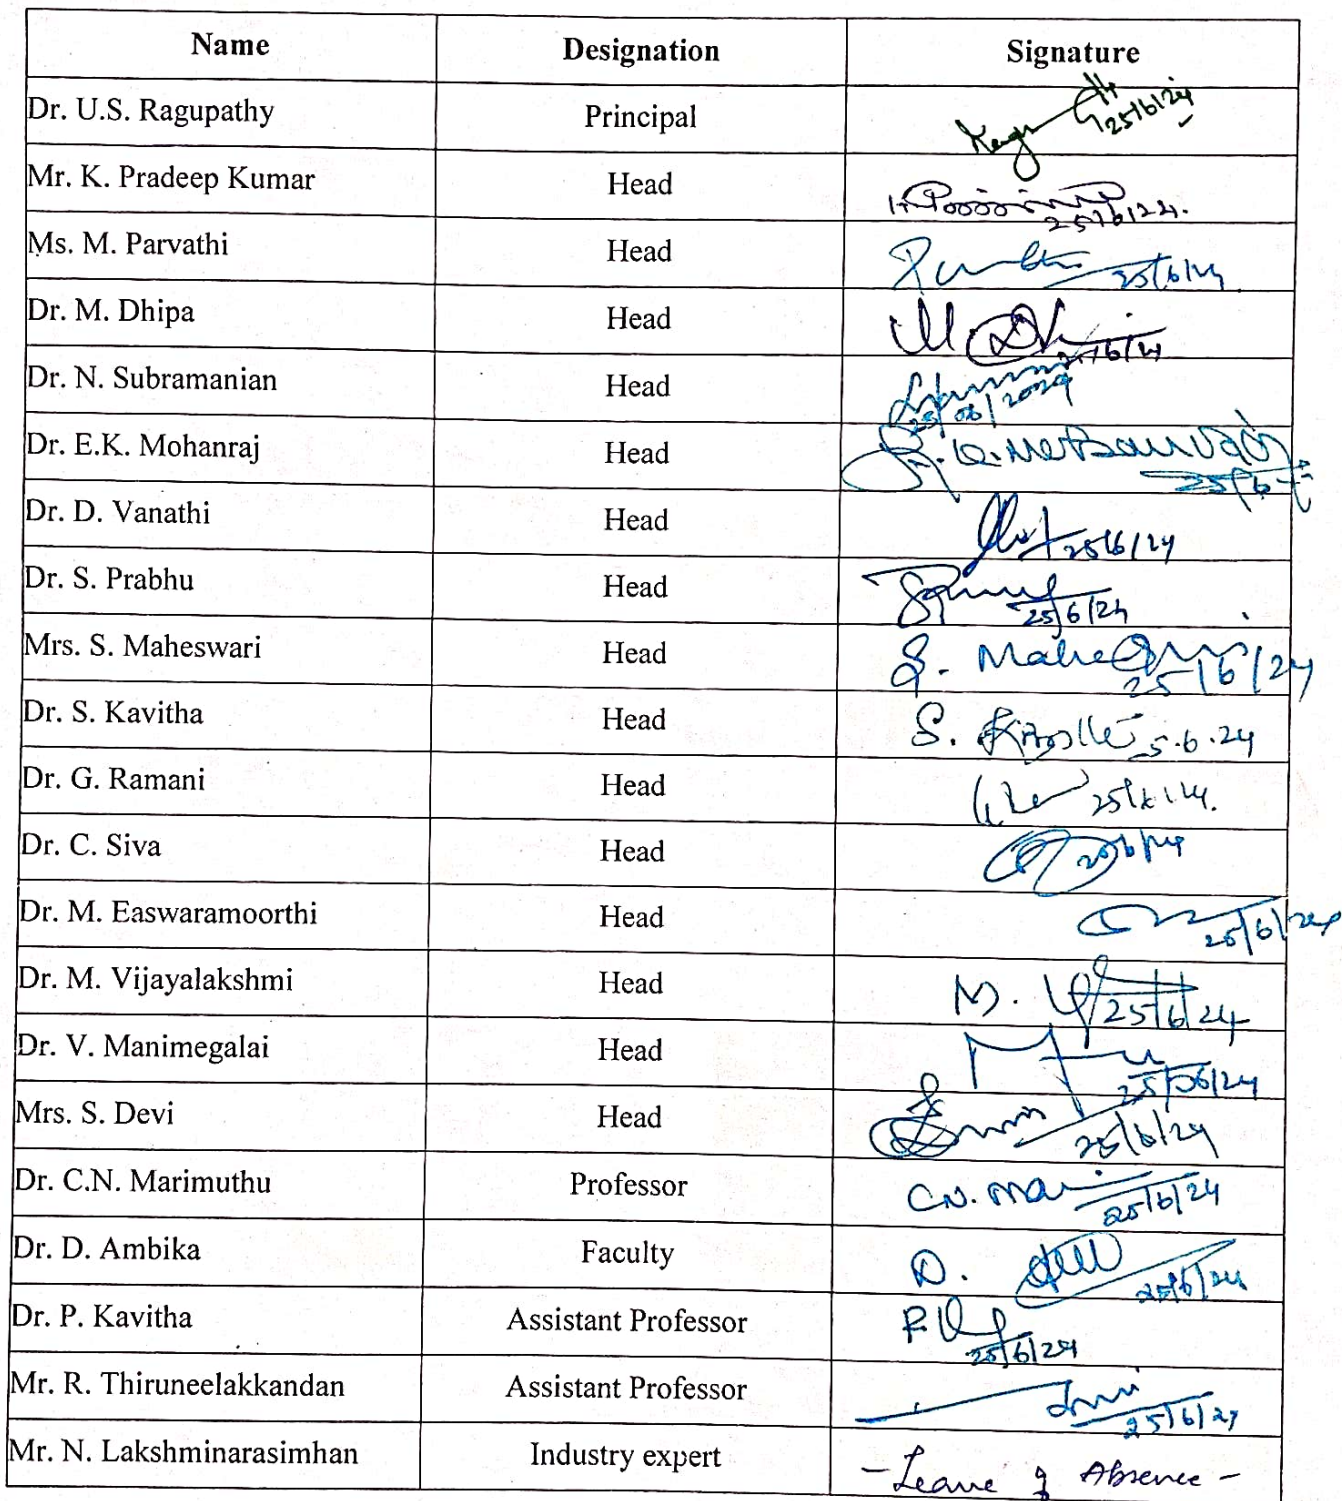 Name Designation Signature
Dr. U.S. Ragupathy Principal 25/6/24
Mr. K. Pradeep Kumar Head 25/6/24.
Ms. M. Parvathi Head 25/6/24
Dr. M. Dhipa Head M. 25/6/24
Dr. N. Subramanian Head 25/06/2024
Dr. E.K. Mohanraj Head
Dr. D. Vanathi Head 25/6/24
Dr. S. Prabhu Head 25/6/24
Mrs. S. Maheswari Head S. 25/6/24
Dr. S. Kavitha Head S. 5.6.24
Dr. G. Ramani Head
Dr. C. Siva Head 25/6/24
Dr. M. Easwaramoorthi Head 25/6/24
Dr. M. Vijayalakshmi Head M. 25/6/24
Dr. V. Manimegalai Head 25/06/24
Mrs. S. Devi Head 25/6/24
Dr. C.N. Marimuthu Professor C.N. Mari 25/6/24
Dr. D. Ambika Faculty D. 25/6/24
Dr. P. Kavitha Assistant Professor P. 25/6/24
Mr. R. Thiruneelakkandan Assistant Professor 25/6/24
Mr. N. Lakshminarasimhan Industry expert - Leave of Absence -